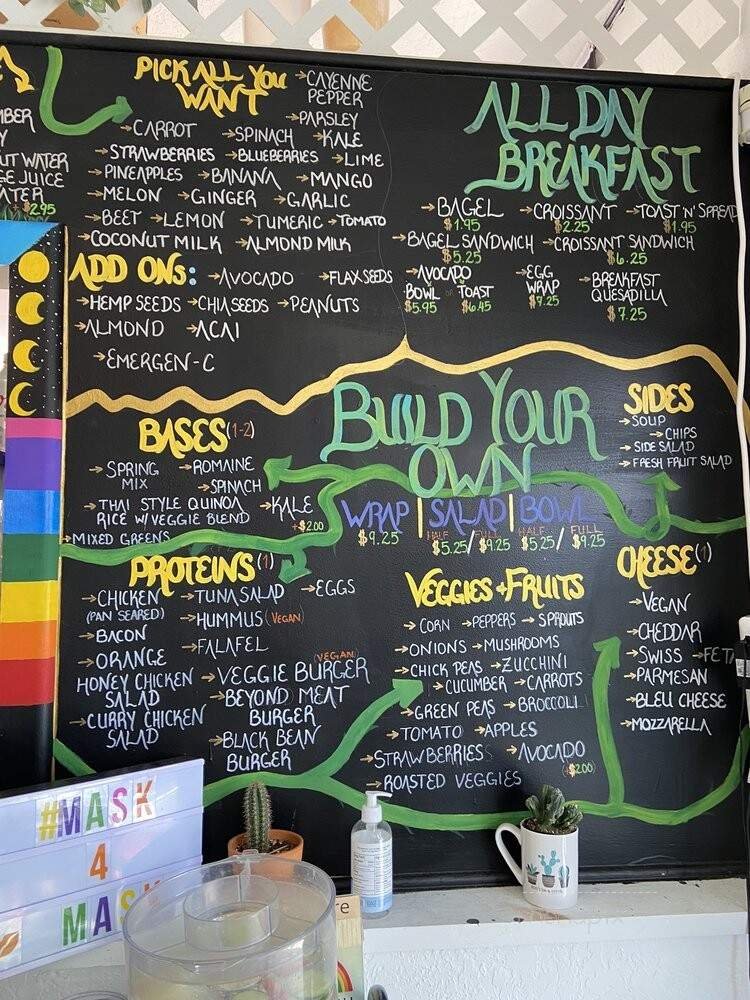 PICK ALL YOU
WANT
→CAYENNE
PEPPER
→PARSLEY
→CARROT →SPINACH →KALE
→STRAWBERRIES →BLUEBERRIES →LIME
→PINEAPPLES →BANANA →MANGO
→MELON →GINGER →GARLIC
→BEET →LEMON →TUMERIC →TOMATO
→COCONUT MILK →ALMOND MILK
WATER
JUICE
$2.95
ADD ONS: →AVOCADO →FLAX SEEDS
→HEMP SEEDS →CHIA SEEDS →PEANUTS
→ALMOND →ACAI
→EMERGEN-C
ALL DAY
BREAKFAST
→BAGEL →CROISSANT →TOAST 'N' SPREAD
$1.95 $2.25 $1.95
→BAGEL SANDWICH →CROISSANT SANDWICH
$5.25 $6.25
→AVOCADO →EGG →BREAKFAST
BOWL OR TOAST WRAP QUESADILLA
$5.95 $6.45 $7.25 $7.25
BUILD YOUR
OWN
WRAP | SALAD | BOWL
HALF FULL HALF FULL
$9.25 $5.25/$9.25 $5.25/$9.25
BASES (1-2)
→SPRING
MIX
→ROMAINE
→SPINACH
→THAI STYLE QUINOA
RICE W/VEGGIE BLEND
→KALE
+$2.00
→MIXED GREENS
PROTEINS (1)
→CHICKEN
(PAN SEARED)
→BACON
→ORANGE
HONEY CHICKEN
SALAD
→CURRY CHICKEN
SALAD
→TUNA SALAD →EGGS
→HUMMUS (VEGAN)
→FALAFEL
VEGAN
→VEGGIE BURGER
→BEYOND MEAT
BURGER
→BLACK BEAN
BURGER
VEGGIES + FRUITS
→CORN →PEPPERS →SPROUTS
→ONIONS →MUSHROOMS
→CHICK PEAS →ZUCCHINI
→CUCUMBER →CARROTS
→GREEN PEAS →BROCCOLI
→TOMATO →APPLES
→STRAWBERRIES →AVOCADO
(+$2.00)
→ROASTED VEGGIES
SIDES
→SOUP
→CHIPS
→SIDE SALAD
→FRESH FRUIT SALAD
CHEESE (1)
→VEGAN
→CHEDDAR
→SWISS →FETA
→PARMESAN
→BLEU CHEESE
→MOZZARELLA
#MASK
4
MASK